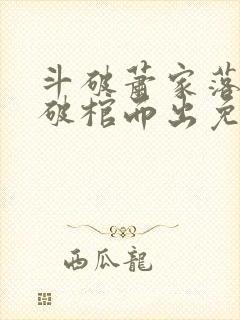 斗破萧家落
破棺而出免
西瓜龍